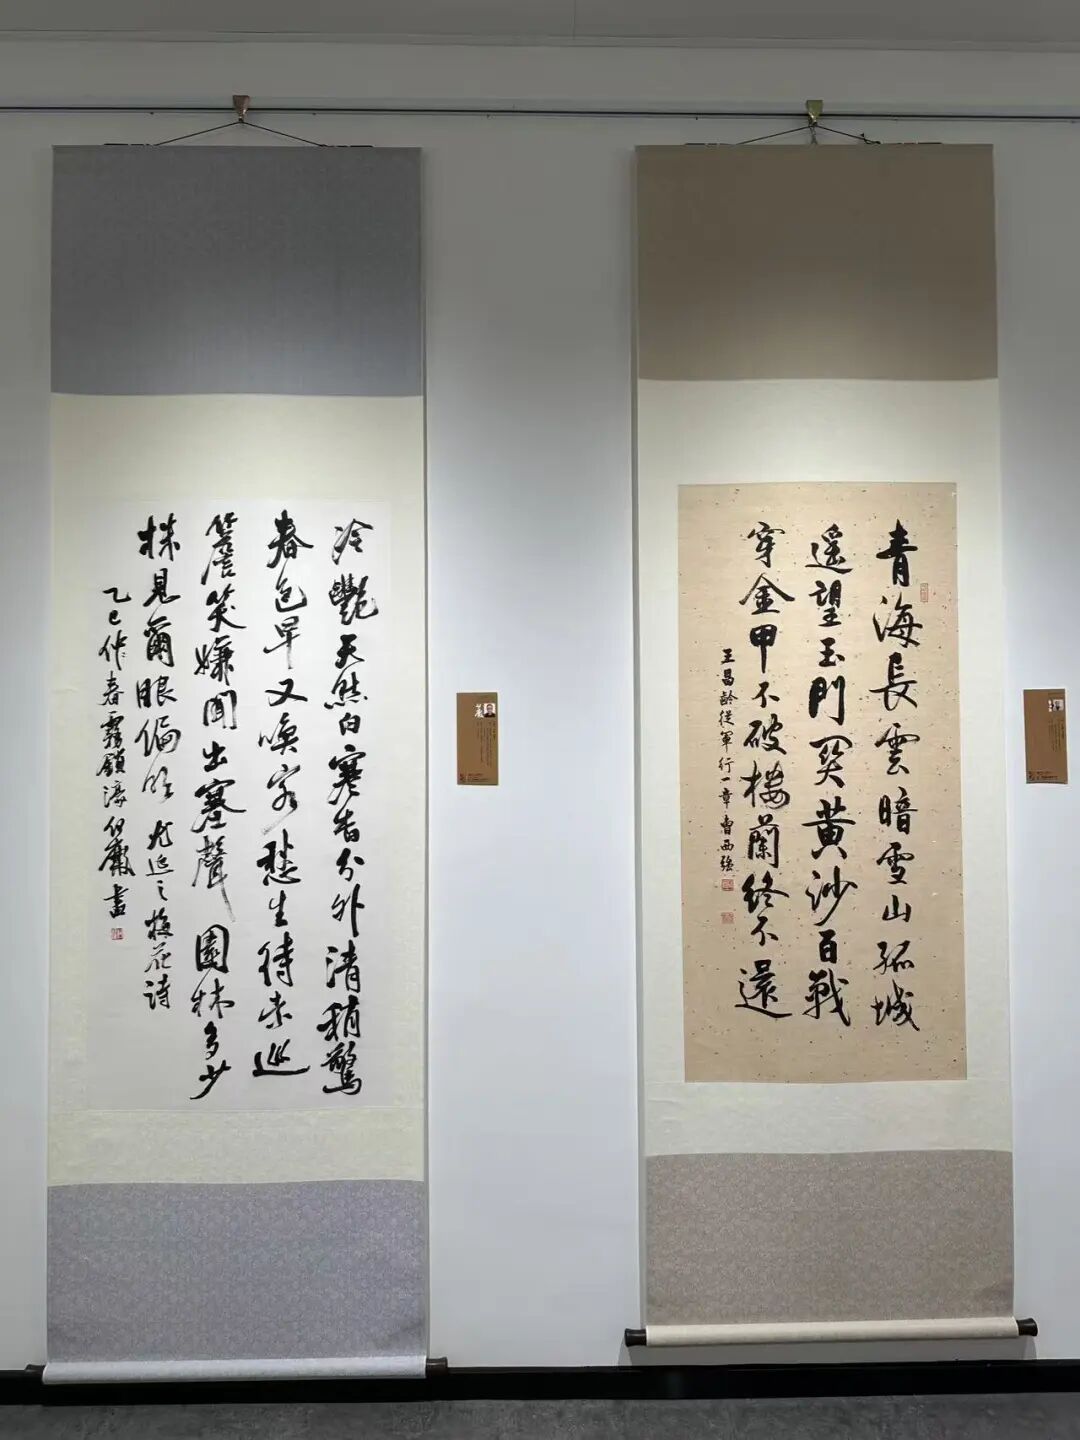 青海長雲暗雪山孤城
遥望玉門関黄沙百戰
穿金甲不破楼蘭終不還
王昌齡從軍行一章曹西强
冷艷天然白寒香分外清稍驚
春色早又喚客愁生待索巡
簷笑嫌聞出塞聲園林多少
株見爾眼偏明尤延之梅花詩
乙巳作春霧鎖濠書